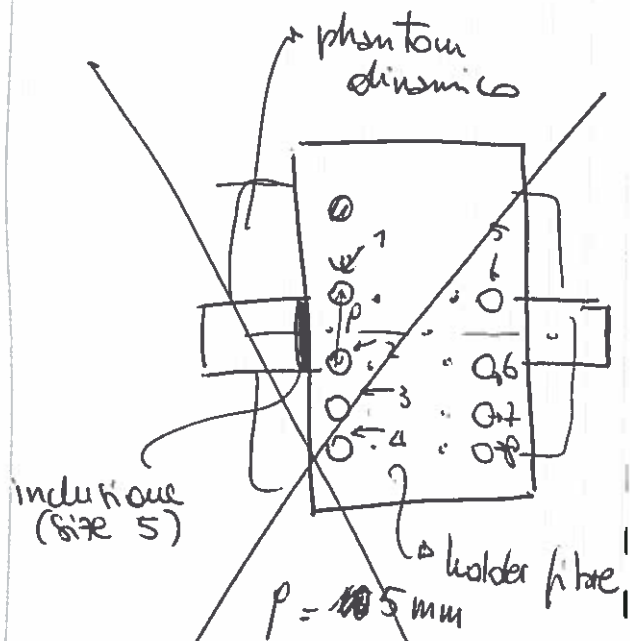 phantom
dinamico
1
5
ρ
2
6
3
7
4
8
inclusione
(size 5)
holder fibre
ρ = 5 mm